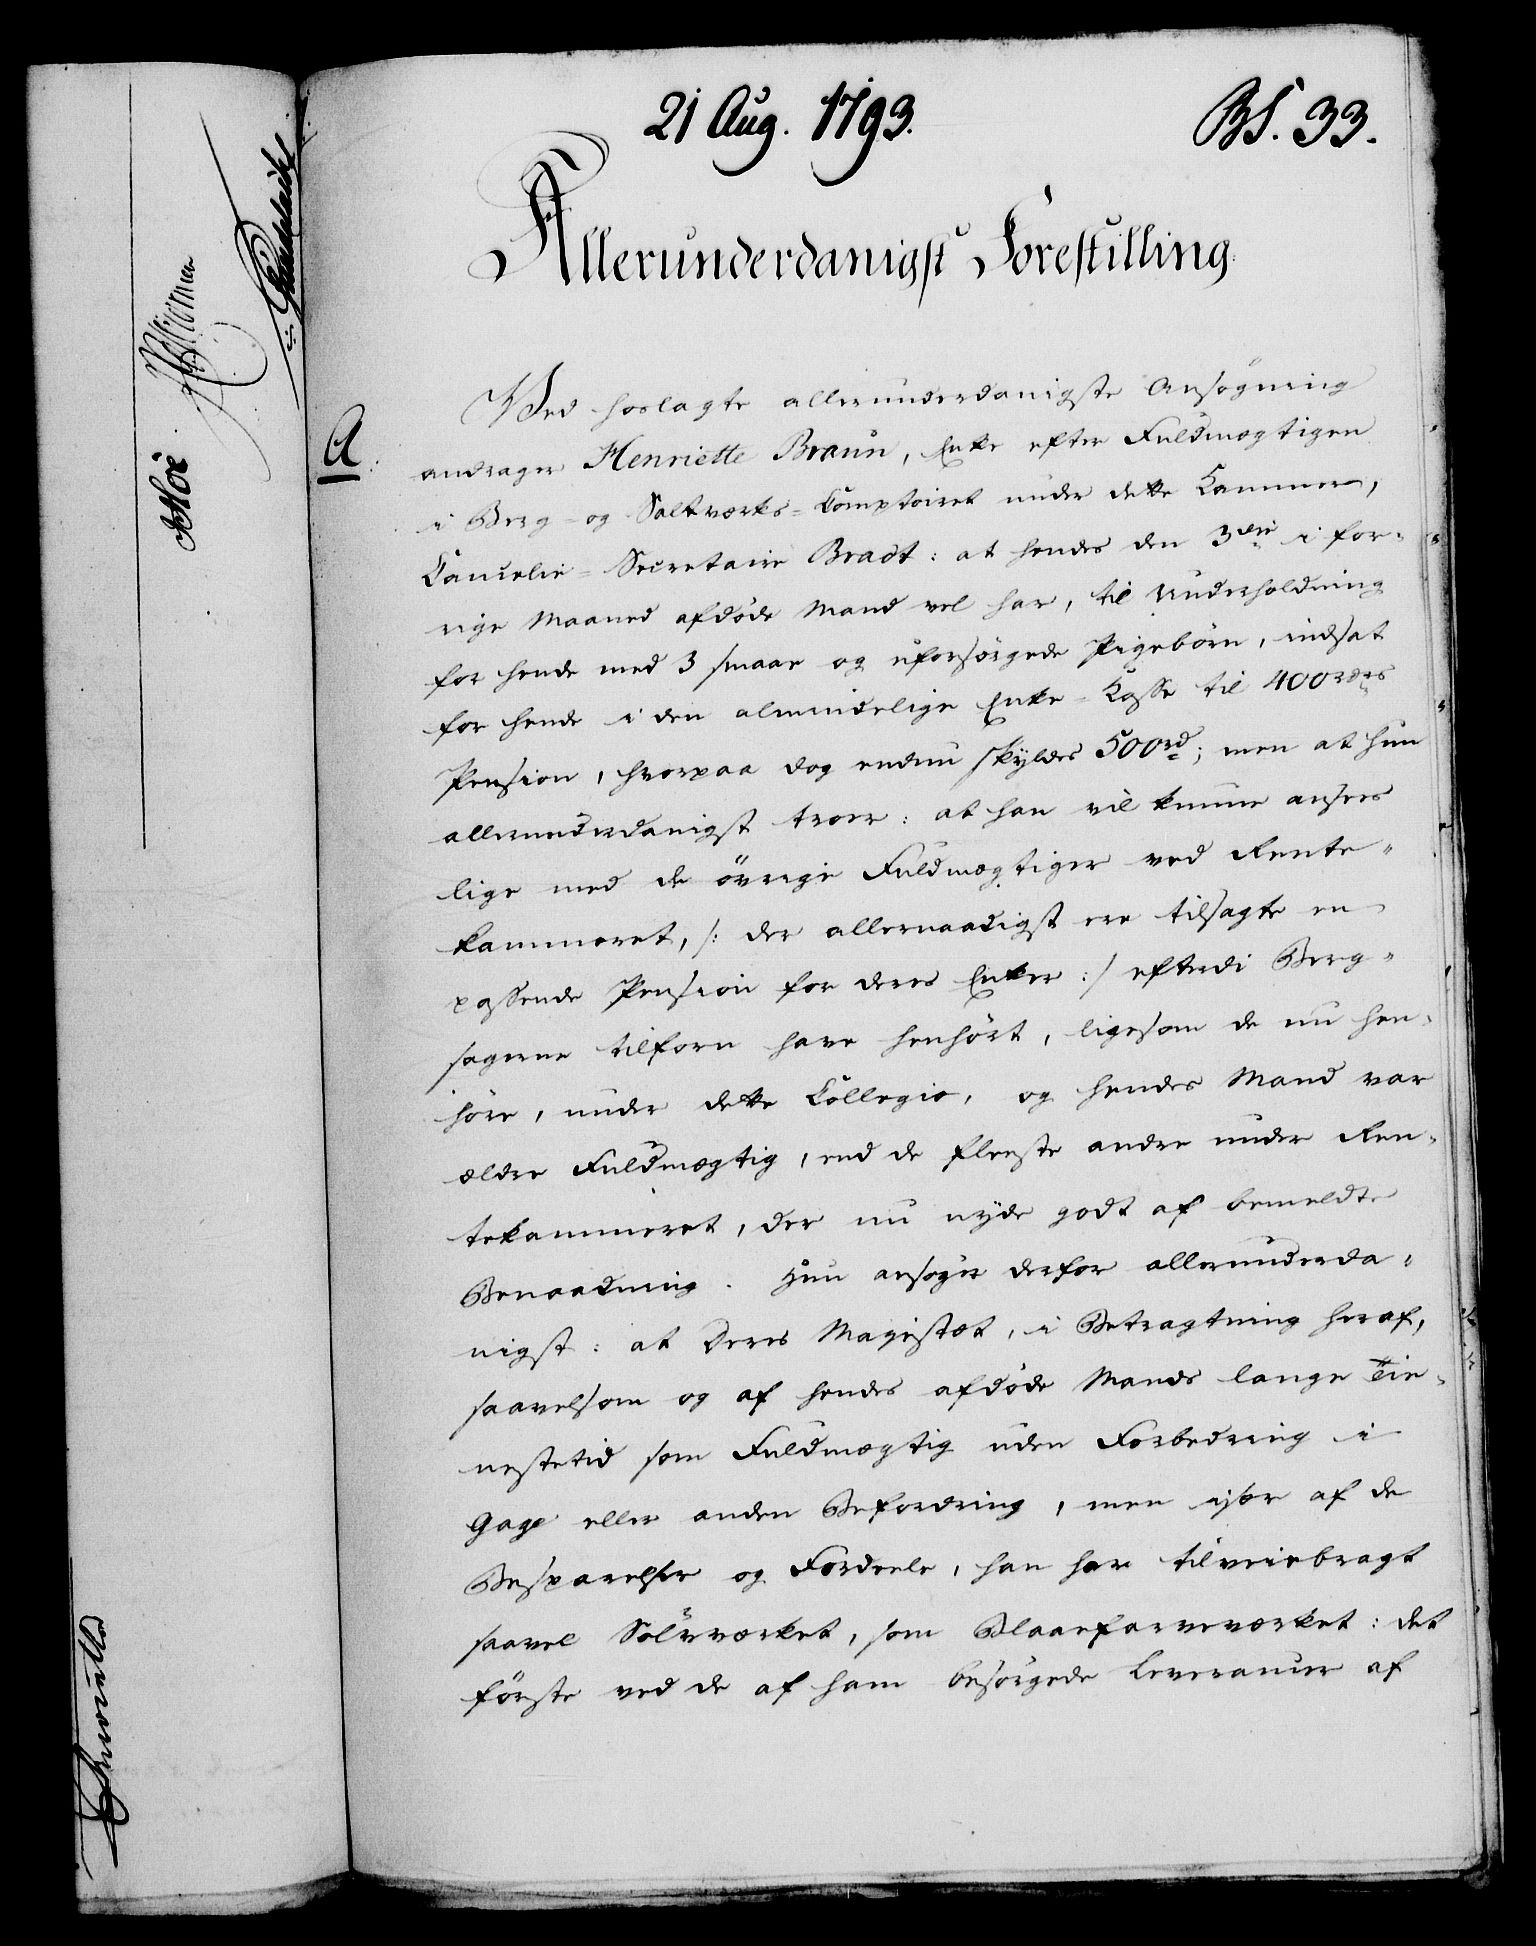 21 Aug. 1793.
BS. 33.
Allerunderdanigst Forestilling.
A.
Ved hoslagte allerunderdanigste Ansøgning
andrager Henriette Braun, Enke efter Fuldmægtigen
i Berg- og Saltværks-Comptoiret under dette Kammer,
Cancelie-Secretaire Bradt: at hendes den 3die i for-
rige Maaned afdøde Mand vel har, til Underholdning
for hende med 3 smaae og uforsørgede Pigebørn, indsat
for hende i den almindelige Enke-Kasse til 400 rdrs
Pension, hvorpaa dog endnu skyldes 500 rd; men at hun
allerunderdanigst troer: at han vil kunne ansees
lige med de øvrige Fuldmægtiger ved Rente-
kammeret, /: der allernaadigst ere tilsagte en
passende Pension for deres Enker :/ efterdi Berg-
sagerne tilforn have henhørt, ligesom de nu hen-
høre, under dette Collegio, og hendes Mand var
ældre Fuldmægtig, end de fleeste andre under Ren-
tekammeret, der nu nyde godt af bemeldte
Benaadning. Hun ansøger derfor allerunderda-
nigst: at Deres Majestæt, i Betragtning heraf,
saavelsom og af hendes afdøde Mands lange Tie-
nestetid som Fuldmægtig uden Forbedring i
Gage eller anden Befordring, men især af de
Besparelser og Fordeele, han har tilveiebragt
saavel Sølvværket, som Blaafarveværket: det
første ved de af ham besørgede Leverancer af